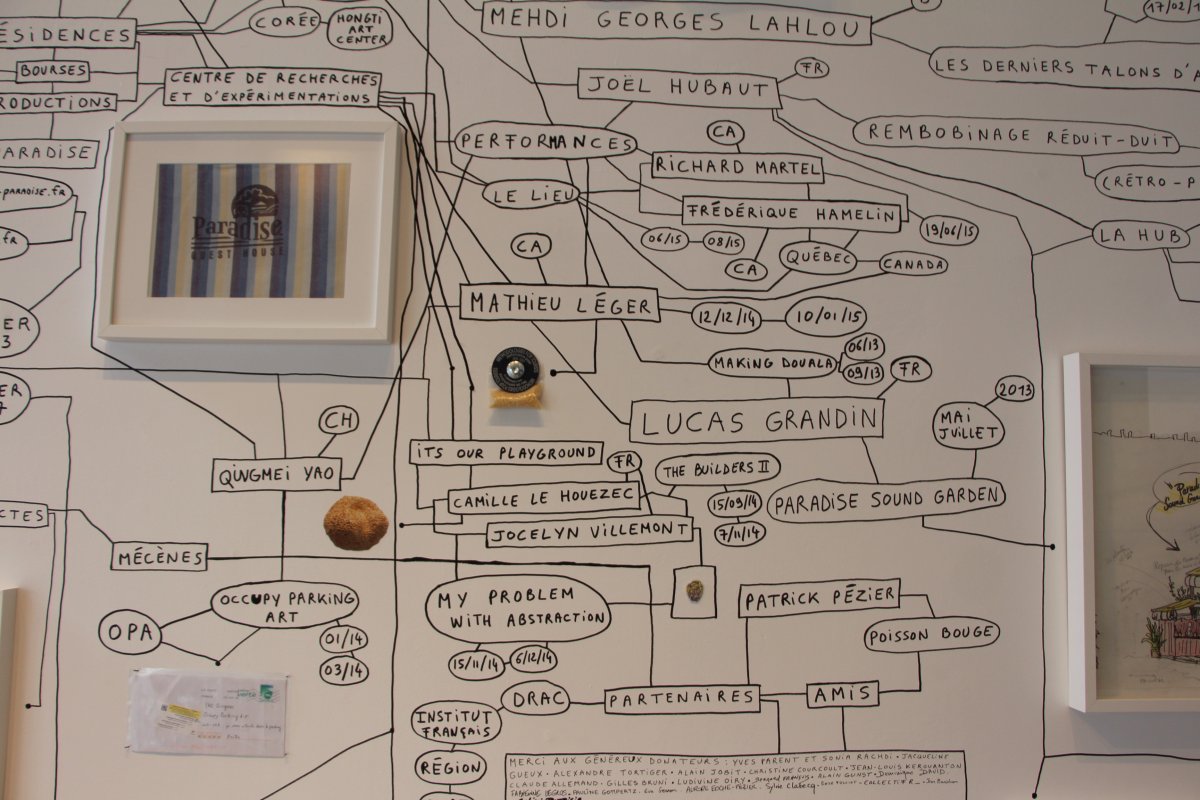 CORÉE
HONGTI
ART
CENTER
MEHDI GEORGES LAHLOU
17/02/1
ÉSIDENCES
BOURSES
RODUCTIONS
PARADISE
-PARADISE.FR
.FR
CENTRE DE RECHERCHES
ET D'EXPÉRIMENTATIONS
JOËL HUBAUT
FR
LES DERNIERS TALONS D'A
PERFORMANCES
CA
RICHARD MARTEL
REMBOBINAGE RÉDUIT-DUIT
(RÉTRO-P
LE LIEU
FRÉDÉRIQUE HAMELIN
19/06/15
LA HUB
06/15
08/15
CA
QUÉBEC
CANADA
Paradise
GUEST HOUSE
CA
MATHIEU LÉGER
12/12/14
10/01/15
MAKING DOUALA
06/13
09/13
FR
LUCAS GRANDIN
2013
MAI
JUILLET
PARADISE SOUND GARDEN
ER
3
ER
7
CH
QINGMEI YAO
ITS OUR PLAYGROUND
FR
CAMILLE LE HOUEZEC
THE BUILDERS II
15/09/14
7/11/14
JOCELYN VILLEMONT
CTES
MÉCÈNES
OCCUPY PARKING
ART
OPA
01/14
03/14
MY PROBLEM
WITH ABSTRACTION
15/11/14
6/12/14
PATRICK PÉZIER
POISSON BOUGE
DRAC
PARTENAIRES
AMIS
INSTITUT
FRANÇAIS
RÉGION
MERCI AUX GÉNÉREUX DONATEURS : YVES PARENT ET SONIA RACHDI • JACQUELINE
GUEUX • ALEXANDRE TORTIGER • ALAIN JOBIT • CHRISTINE COURCOULT • JEAN-LOUIS KEROUANTON
CLAUDE ALLEMAND • GILLES BRUNI • LUDIVINE OIRY • ALAIN GUNST • Dominique DAVID
PAULINE GOMPERTZ • Sylvie • COLLECTIF R
Sound Garden